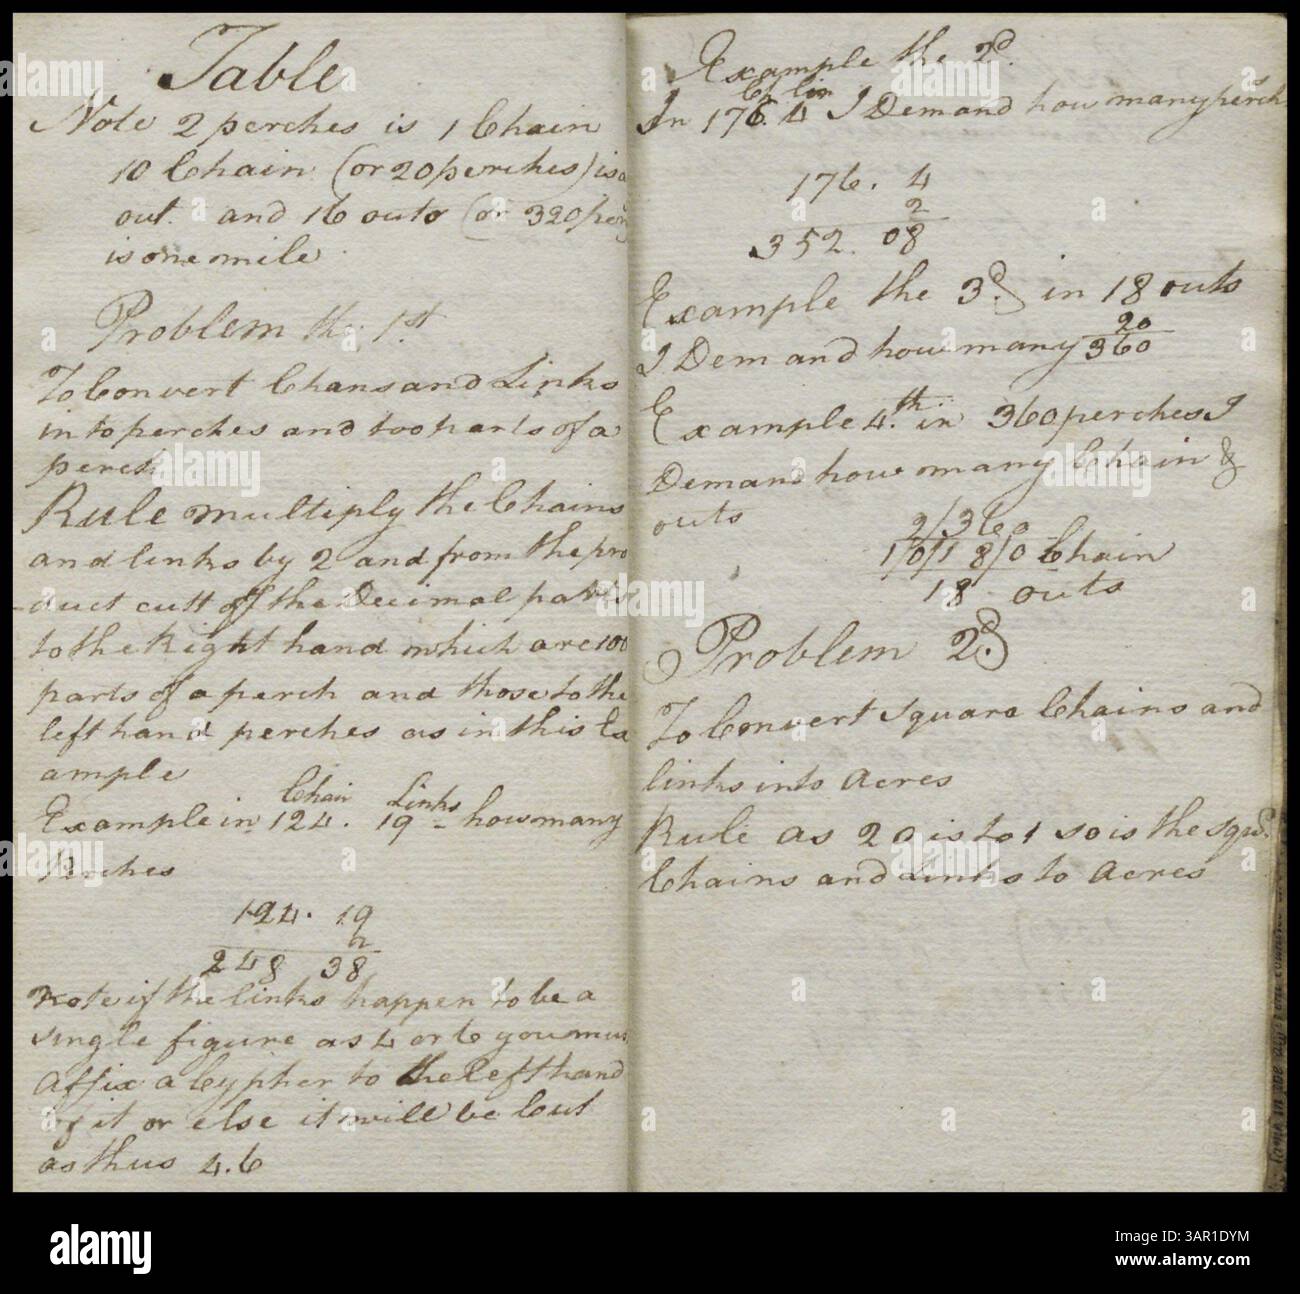 Table
Note 2 perches is 1 Chain
10 Chain (or 20 perches) is a
out. and 16 outs (or 320 per
is one mile
Problem the 1st
To Convert Chans and Links
into perches and too parts of a
perch
Rule multiply the Chains
and links by 2 and from the pro
duct cutt off the Decimal parts
to the Right hand which are 100
parts of a perch and those to the
left hand perches as in this Ex
ample
Chain Links
Example in 124. 19 - how many
Perches
124. 19
2
248 38
Note if the links happen to be a
single figure as 4 or 6 you mus
affix a Cypher to the left hand
of it or else it will be Cut
as thus 4.6
Example the 2d.
Ch Lin
In 176. 4 I Demand how many perch
176. 4
2
352. 08
Example the 3d. in 18 outs
20
I Demand how many 360
Example 4.th in 360 perches I
Demand how many Chain &
outs
2/360
1/0/18/0 Chain
18 outs
Problem 2d.
To Convert square Chains and
links into Acres
Rule as 20 is to 1 so is the sqr.
Chains and Links to Acres
alamy
a
Image ID: 3AR1DYM
www.alamy.com